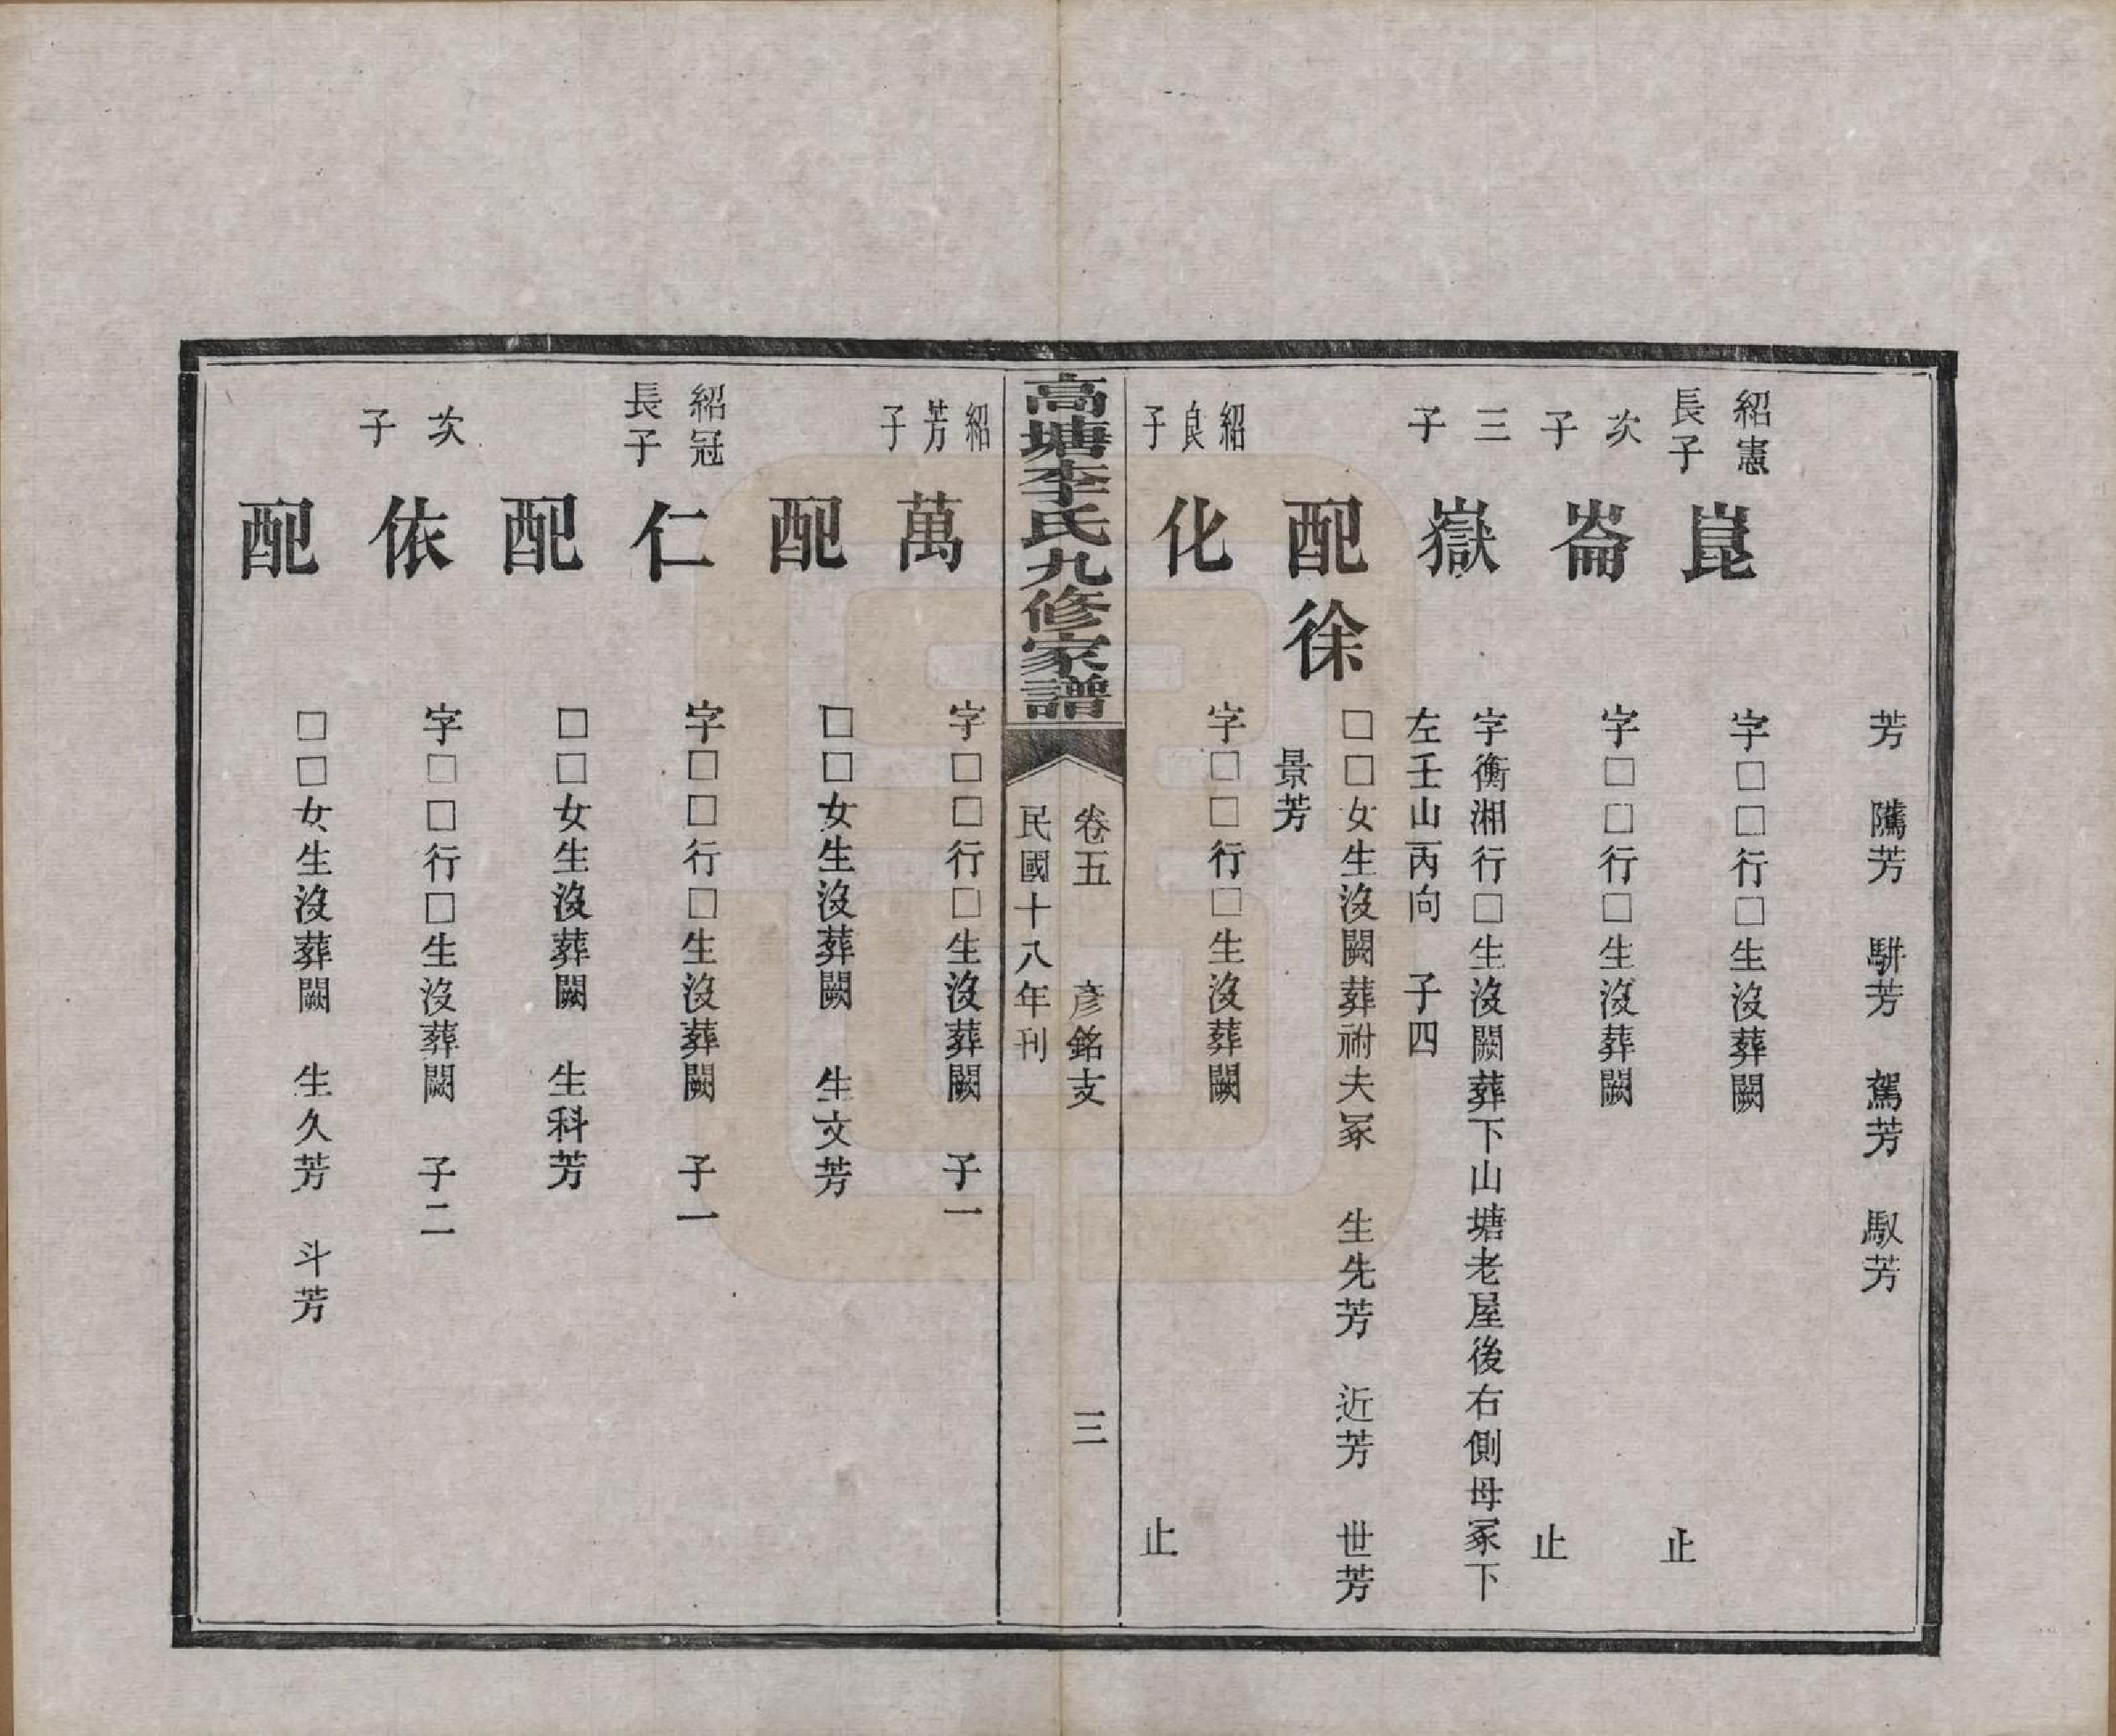 芳　隲芳　駢芳　駕芳　馭芳
紹憲
長子
崑
字□□行□生沒葬闕
止
次
子
崙
字□□行□生沒葬闕
止
三
子
嶽
字衡湘行□生沒闕葬下山塘老屋後右側母冢下
左壬山丙向　子四
配徐
□□女生沒闕葬祔夫冢　生先芳　近芳　世芳
景芳
紹
良
子
化
字□□行□生沒葬闕
止
高塘李氏九修家譜
卷五　彦銘支　三
民國十八年刊
紹
芳
子
萬
字□□行□生沒葬闕　子一
配
□□女生沒葬闕　生文芳
紹冠
長子
仁
字□□行□生沒葬闕　子一
配
□□女生沒葬闕　生科芳
次
子
依
字□□行□生沒葬闕　子二
配
□□女生沒葬闕　生久芳　斗芳